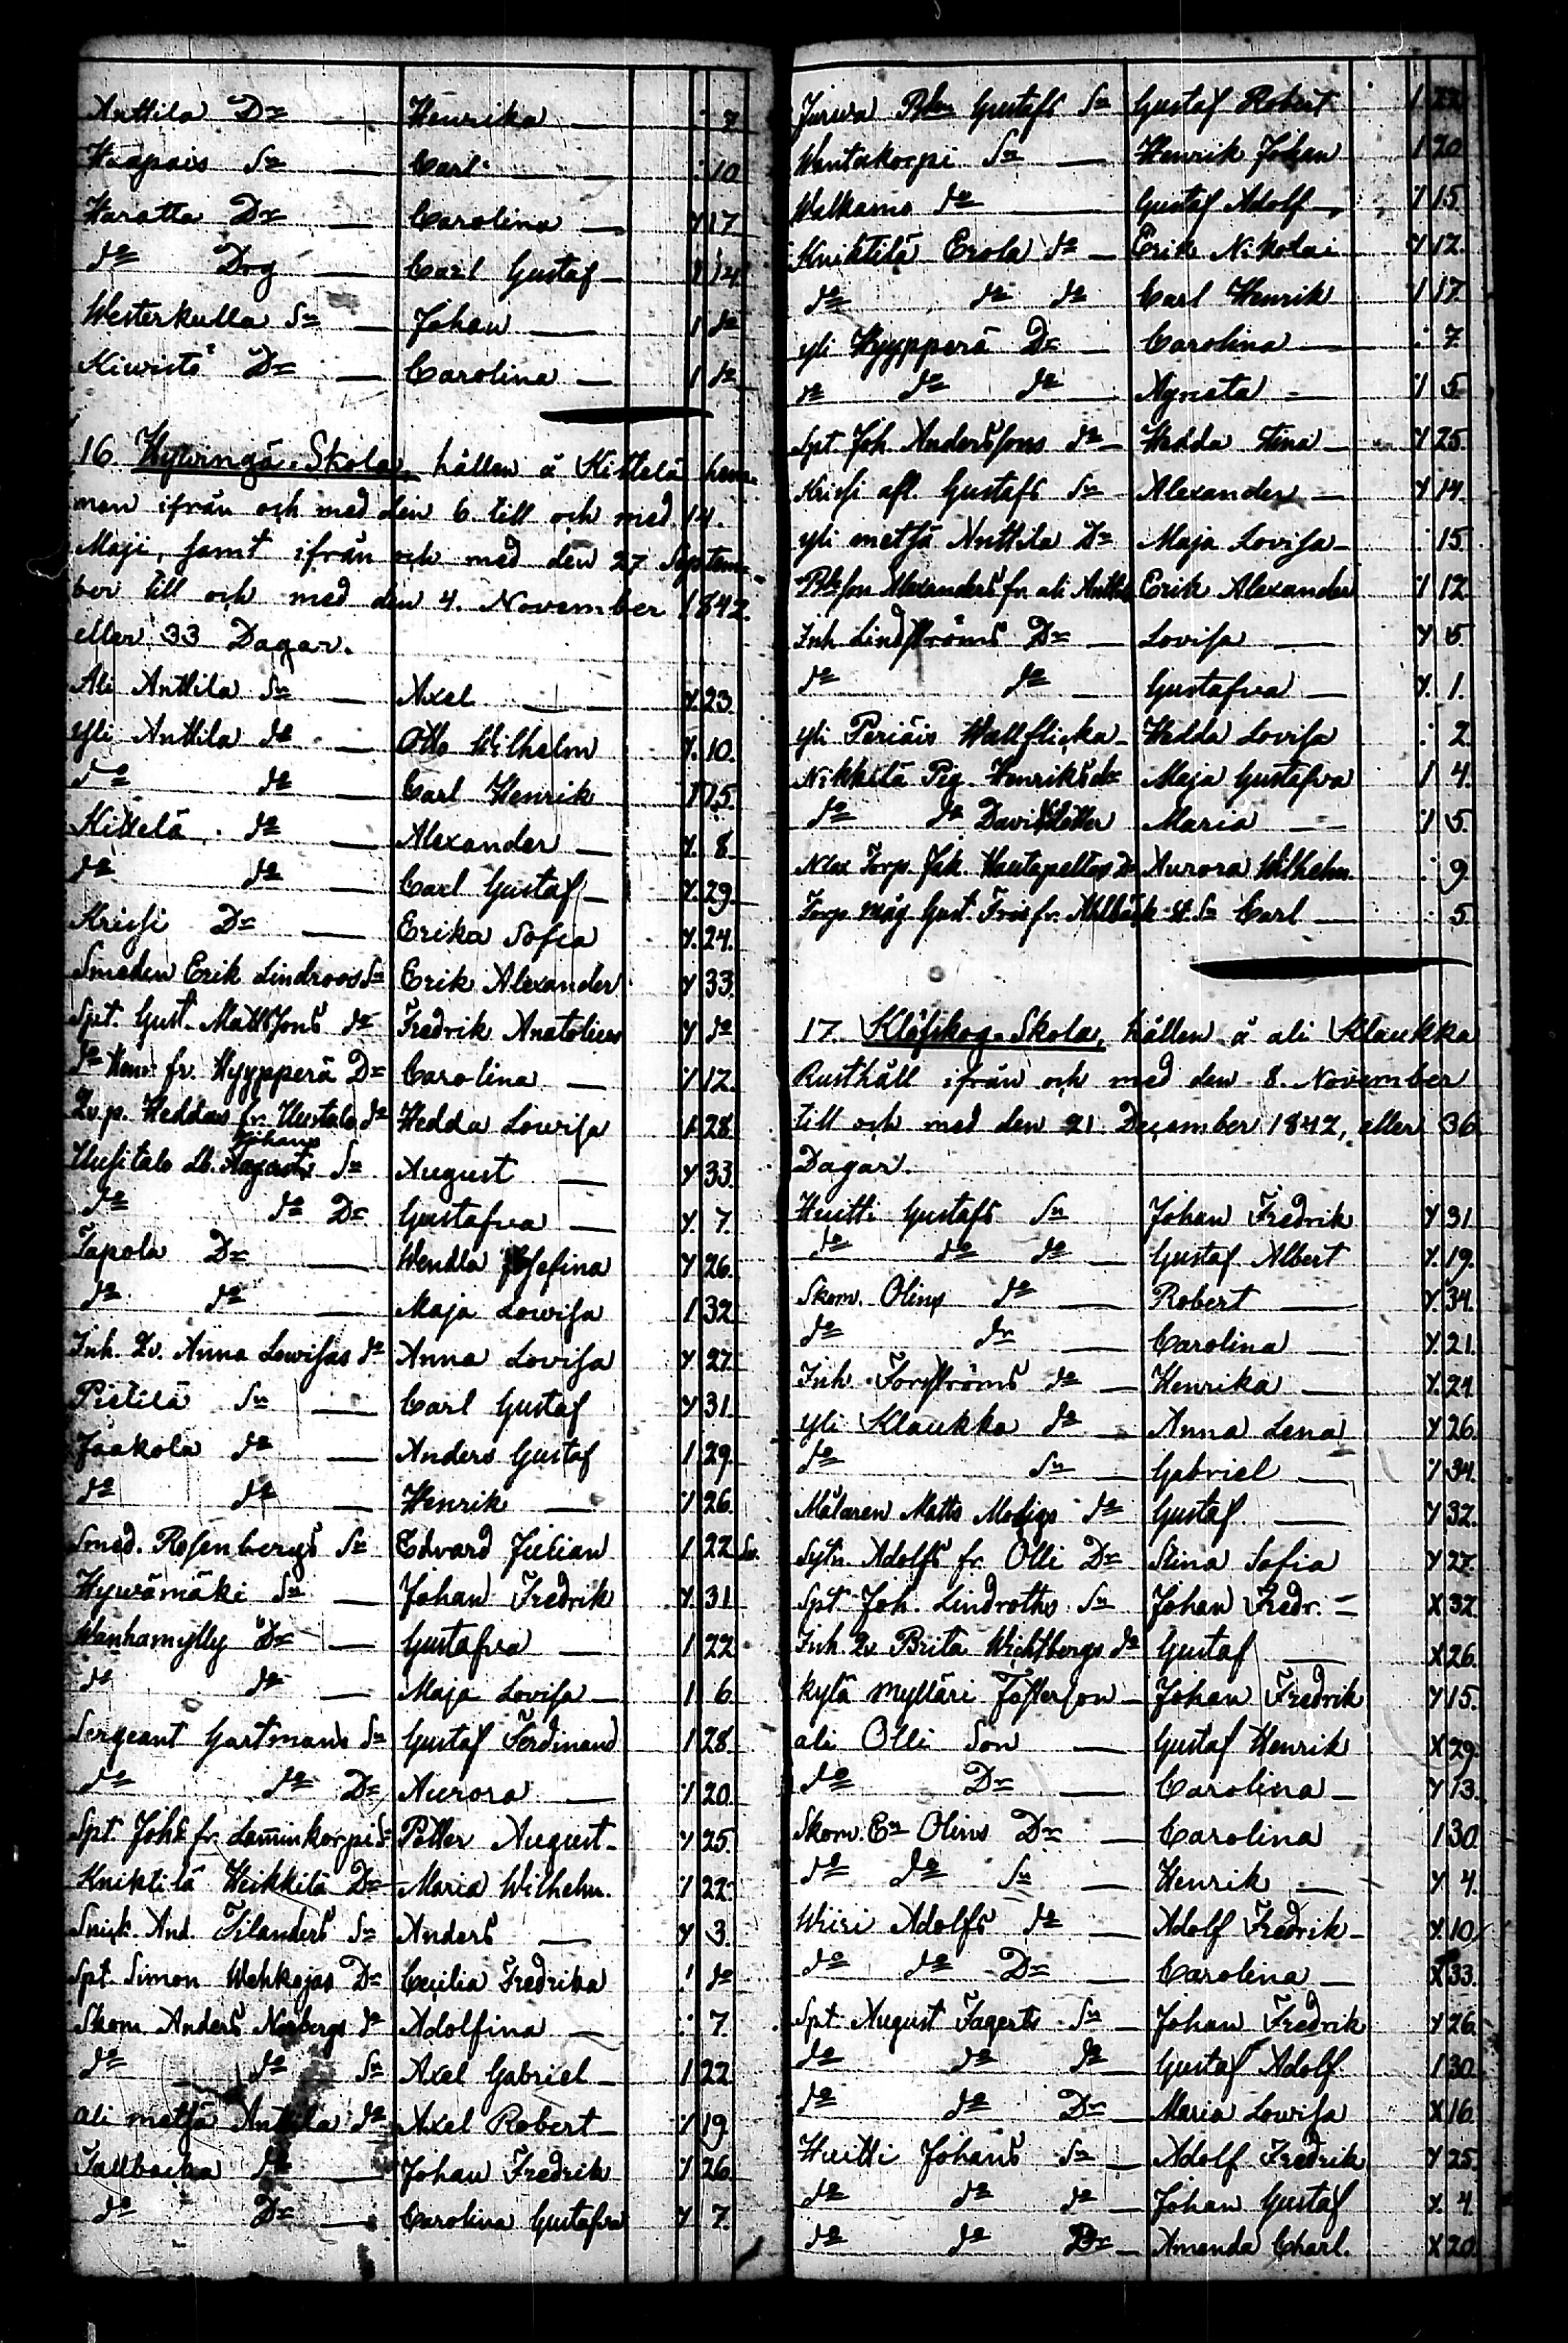 Anttila Dr — Henrika — : 7
Haapais Sn — Carl — : 10
Haratta Dr — Carolina — Y 17
do Drg — Carl Gustaf — 1 14
Westerkulla Sn — Johan — 1 do
Kiwistö Dr — Carolina — 1 do
16 Hywinga Skola, hållen å Kittelä hem-
man ifrån och med den 6. till och med 14.
Maji, samt ifrån och med den 27 Septem-
ber till och med den 4. November 1842.
eller 33 Dagar.
Ali Anttila Sn — Axel — Y. 23.
Yli Anttila do — Otto Wilhelm Y. 10.
do do — Carl Henrik 1 15.
Kittelä do — Alexander — Y. 8
do do — Carl Gustaf — Y. 29.
Krissi Dr — Erika Sofia Y. 24.
Smeden Erik Lindroos Sn Erik Alexander Y 33.
Spt. Gust. Mattssons do Fredrik Anatolius Y do
do Henr. fr. Hyypperä Dr Carolina — 1 12.
Qv.p. Heddas fr. Uustalo do Hedda Lowisa 1 28.
Johans
Uusitalo Lb. Sn August — Y 33.
do do Dr Gustafva — Y. 7.
Tapola Dr — Wendla Josefina Y 26.
do do — Maja Lowisa 1 32
Inh. Qv. Anna Lowisas do Anna Lovisa Y 27.
Pietilä Sn — Carl Gustaf Y 31.
Jaakola do — Anders Gustaf 1 29.
do do — Henrik — 1 26.
Smed. Rosenbergs Sn Edvard Julian 1 22 Sv.
Hywämäki Sn — Johan Fredrik Y. 31
Wanhamylly Dr — Gustafva — 1 22
do do — Maja Lovisa — 1 6
Sergeant Gartmans Sn Gustaf Ferdinand 1 28.
do do Dr Aurora — 1 20.
Spt. Johs fr. Laminkorpi Sn Petter August — Y 25.
Kniktilä Heikkilä Dr Maria Wilhelm. 1 22.
Snick. And. Filanders Sn Anders — Y 3.
Spt. Simon Wehkojas Dr Cecilia Fredrika 1 do
Skom. Anders Norbergs do Adolfina — : 7.
do do Sn Axel Gabriel — 1 22
ali metsä Anttila do Axel Robert — 1 19
Tallbacka do — Johan Fredrik 1 26
do Dr — Carolina Gustafva Y 7.
Jurva Gustafs Sn Gustaf Robert 1 22
Wantakorpi Sn — Henrik Johan 1 20
Walkamo do — Gustaf Adolf — 1 15
Kniktilä Erola do — Erik Nikolai Y 12.
do do do Carl Henrik 1 17.
yli Hyypperä Dr — Carolina — : 7
do do do Agneta — 1 5
Spt. Joh. Anderssons do — Hedda Stina — Y 25.
Krissi afl. Gustafs Sn — Alexander — Y 14.
yli metsä Anttila Dr Maja Lovisa — : 15.
Alexanders fr. ali Anttila Erik Alexander 1 12
Inh Lindströms Dr — Lovisa — Y. 5.
do do — Gustafva — Y. 1.
yli Periäis Wallflicka — Hedda Lovisa : 2.
Nikkilä Pig. Henriksdr Maja Gustafva 1 4.
do do Davidsdotter Maria — 1 5.
Torp. Jak. Hautapeltos Dr Aurora Wilhelm : 9
Torp. måg. Gust. fr. Ahlbäck Sn Carl — : 5
17. Klöfskog Skola, hållen å ali Klaukka
Rusthåll ifrån och med den 8. November
till och med den 21. December 1842, eller 36
Dagar.
Huitti Gustafs Sn Johan Fredrik Y 31
do do do — Gustaf Albert Y. 19.
Skom. Olins do — Robert — Y. 34.
do dr — Carolina — Y. 21.
Inh. Forsströms do — Henrika — Y. 24
yli Klaukka do — Anna Lena Y 26.
do Sn — Gabriel — 1 34.
Målaren Matts Modigs do Gustaf — Y 32.
Sytn. Adolfs fr. Olli Dr Stina Sofia Y 27.
Spt Joh. Lindroths Sn Johan Fredr. — X 32.
Inh. Qv. Brita Wichtbergs do Gustaf — X 26.
kylä mylläri Fosterson — Johan Fredrik Y 15.
ali Olli Son — Gustaf Henrik X 29.
do Dr — Carolina — Y 13.
Skom. En Olins Dr — Carolina 1 30.
do do Sn — Henrik — Y 4.
Wiiri Adolfs do — Adolf Fredrik — Y. 10
do do Dr — Carolina — X 33.
Spt. August Fagerts Sn — Johan Fredrik Y 26
do do do — Gustaf Adolf 1 30.
do do Dr — Maria Lowisa X 16
Huitti Johans Sn — Adolf Fredrik Y 25.
do do do — Johan Gustaf Y. 4.
do do Dr — Amanda Charl. X 20.